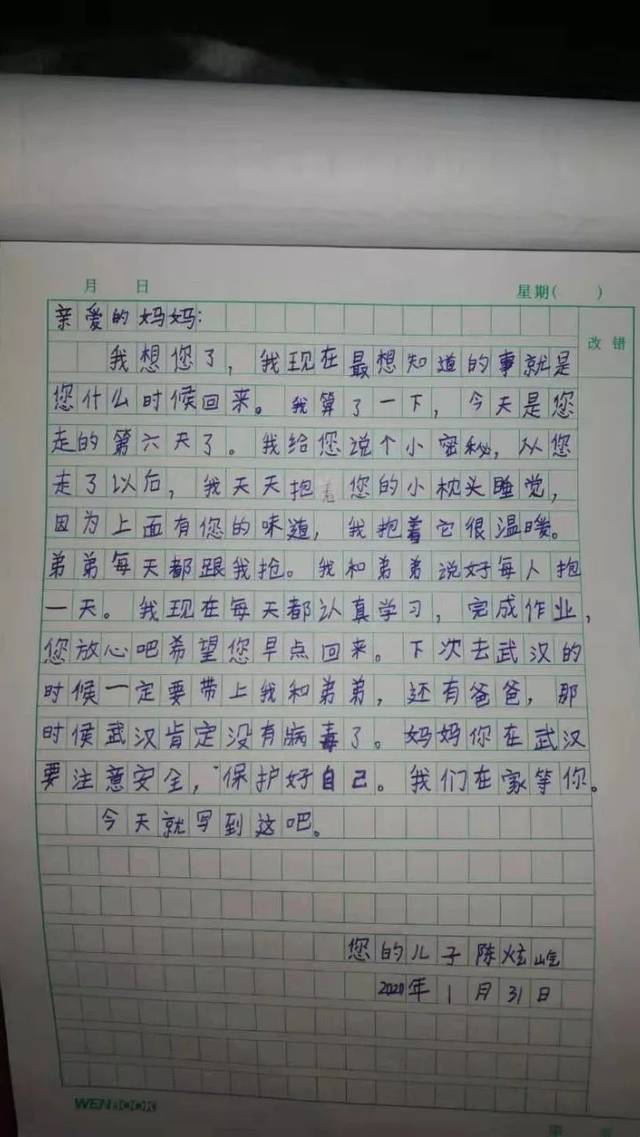 月 日 星期( )
亲爱的妈妈:
改错
我想您了,我现在最想知道的事就是
您什么时候回来。我算了一下,今天是您
走的第六天了。我给您说个小密秘,从您
走了以后,我天天抱着您的小枕头睡觉,
因为上面有您的味道,我抱着它很温暖。
弟弟每天都跟我抢。我和弟弟说好每人抱
一天。我现在每天都认真学习,完成作业,
您放心吧希望您早点回来。下次去武汉的
时候一定要带上我和弟弟,还有爸爸,那
时侯武汉肯定没有病毒了。妈妈你在武汉
要注意安全,保护好自己。我们在家等你。
今天就写到这吧。
您的儿子陈炫
2020年1月31日